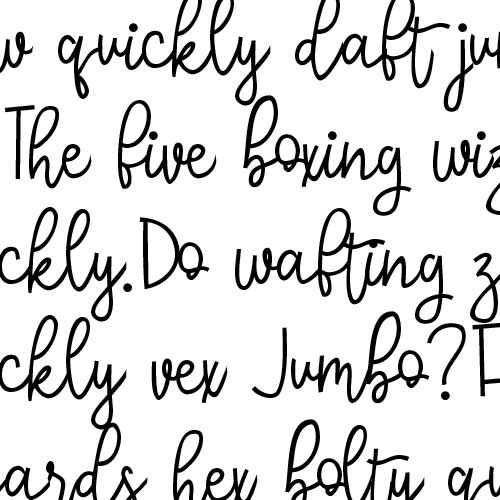 w quickly daft ju
The five boxing wiz
ckly.Do wafting z
ckly vex Jumbo?F
ards hex bolty qu